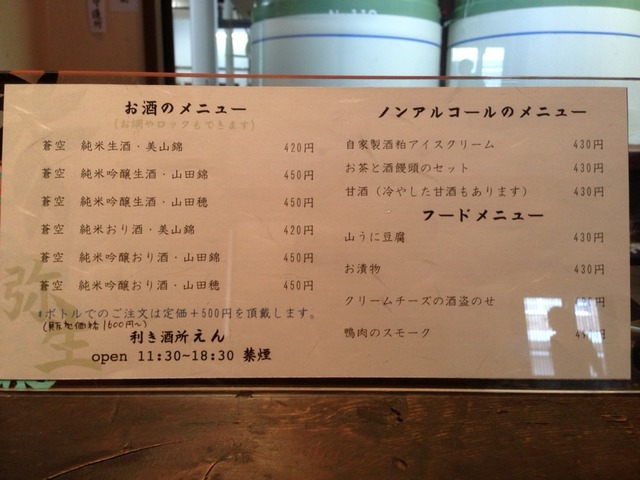 お酒のメニュー
(お燗やロックもできます)
蒼空 純米生酒・美山錦 420円
蒼空 純米吟醸生酒・山田錦 450円
蒼空 純米吟醸生酒・山田穂 450円
蒼空 純米おり酒・美山錦 420円
蒼空 純米吟醸おり酒・山田錦 450円
蒼空 純米吟醸おり酒・山田穂 450円
*ボトルでのご注文は定価+500円を頂戴します。
(販売価格1600円〜)
利き酒所えん
open 11:30~18:30 禁煙
ノンアルコールのメニュー
自家製酒粕アイスクリーム 430円
お茶と酒饅頭のセット 430円
甘酒(冷やした甘酒もあります) 430円
フードメニュー
山うに豆腐 430円
お漬物 430円
クリームチーズの酒盗のせ
鴨肉のスモーク
弥生